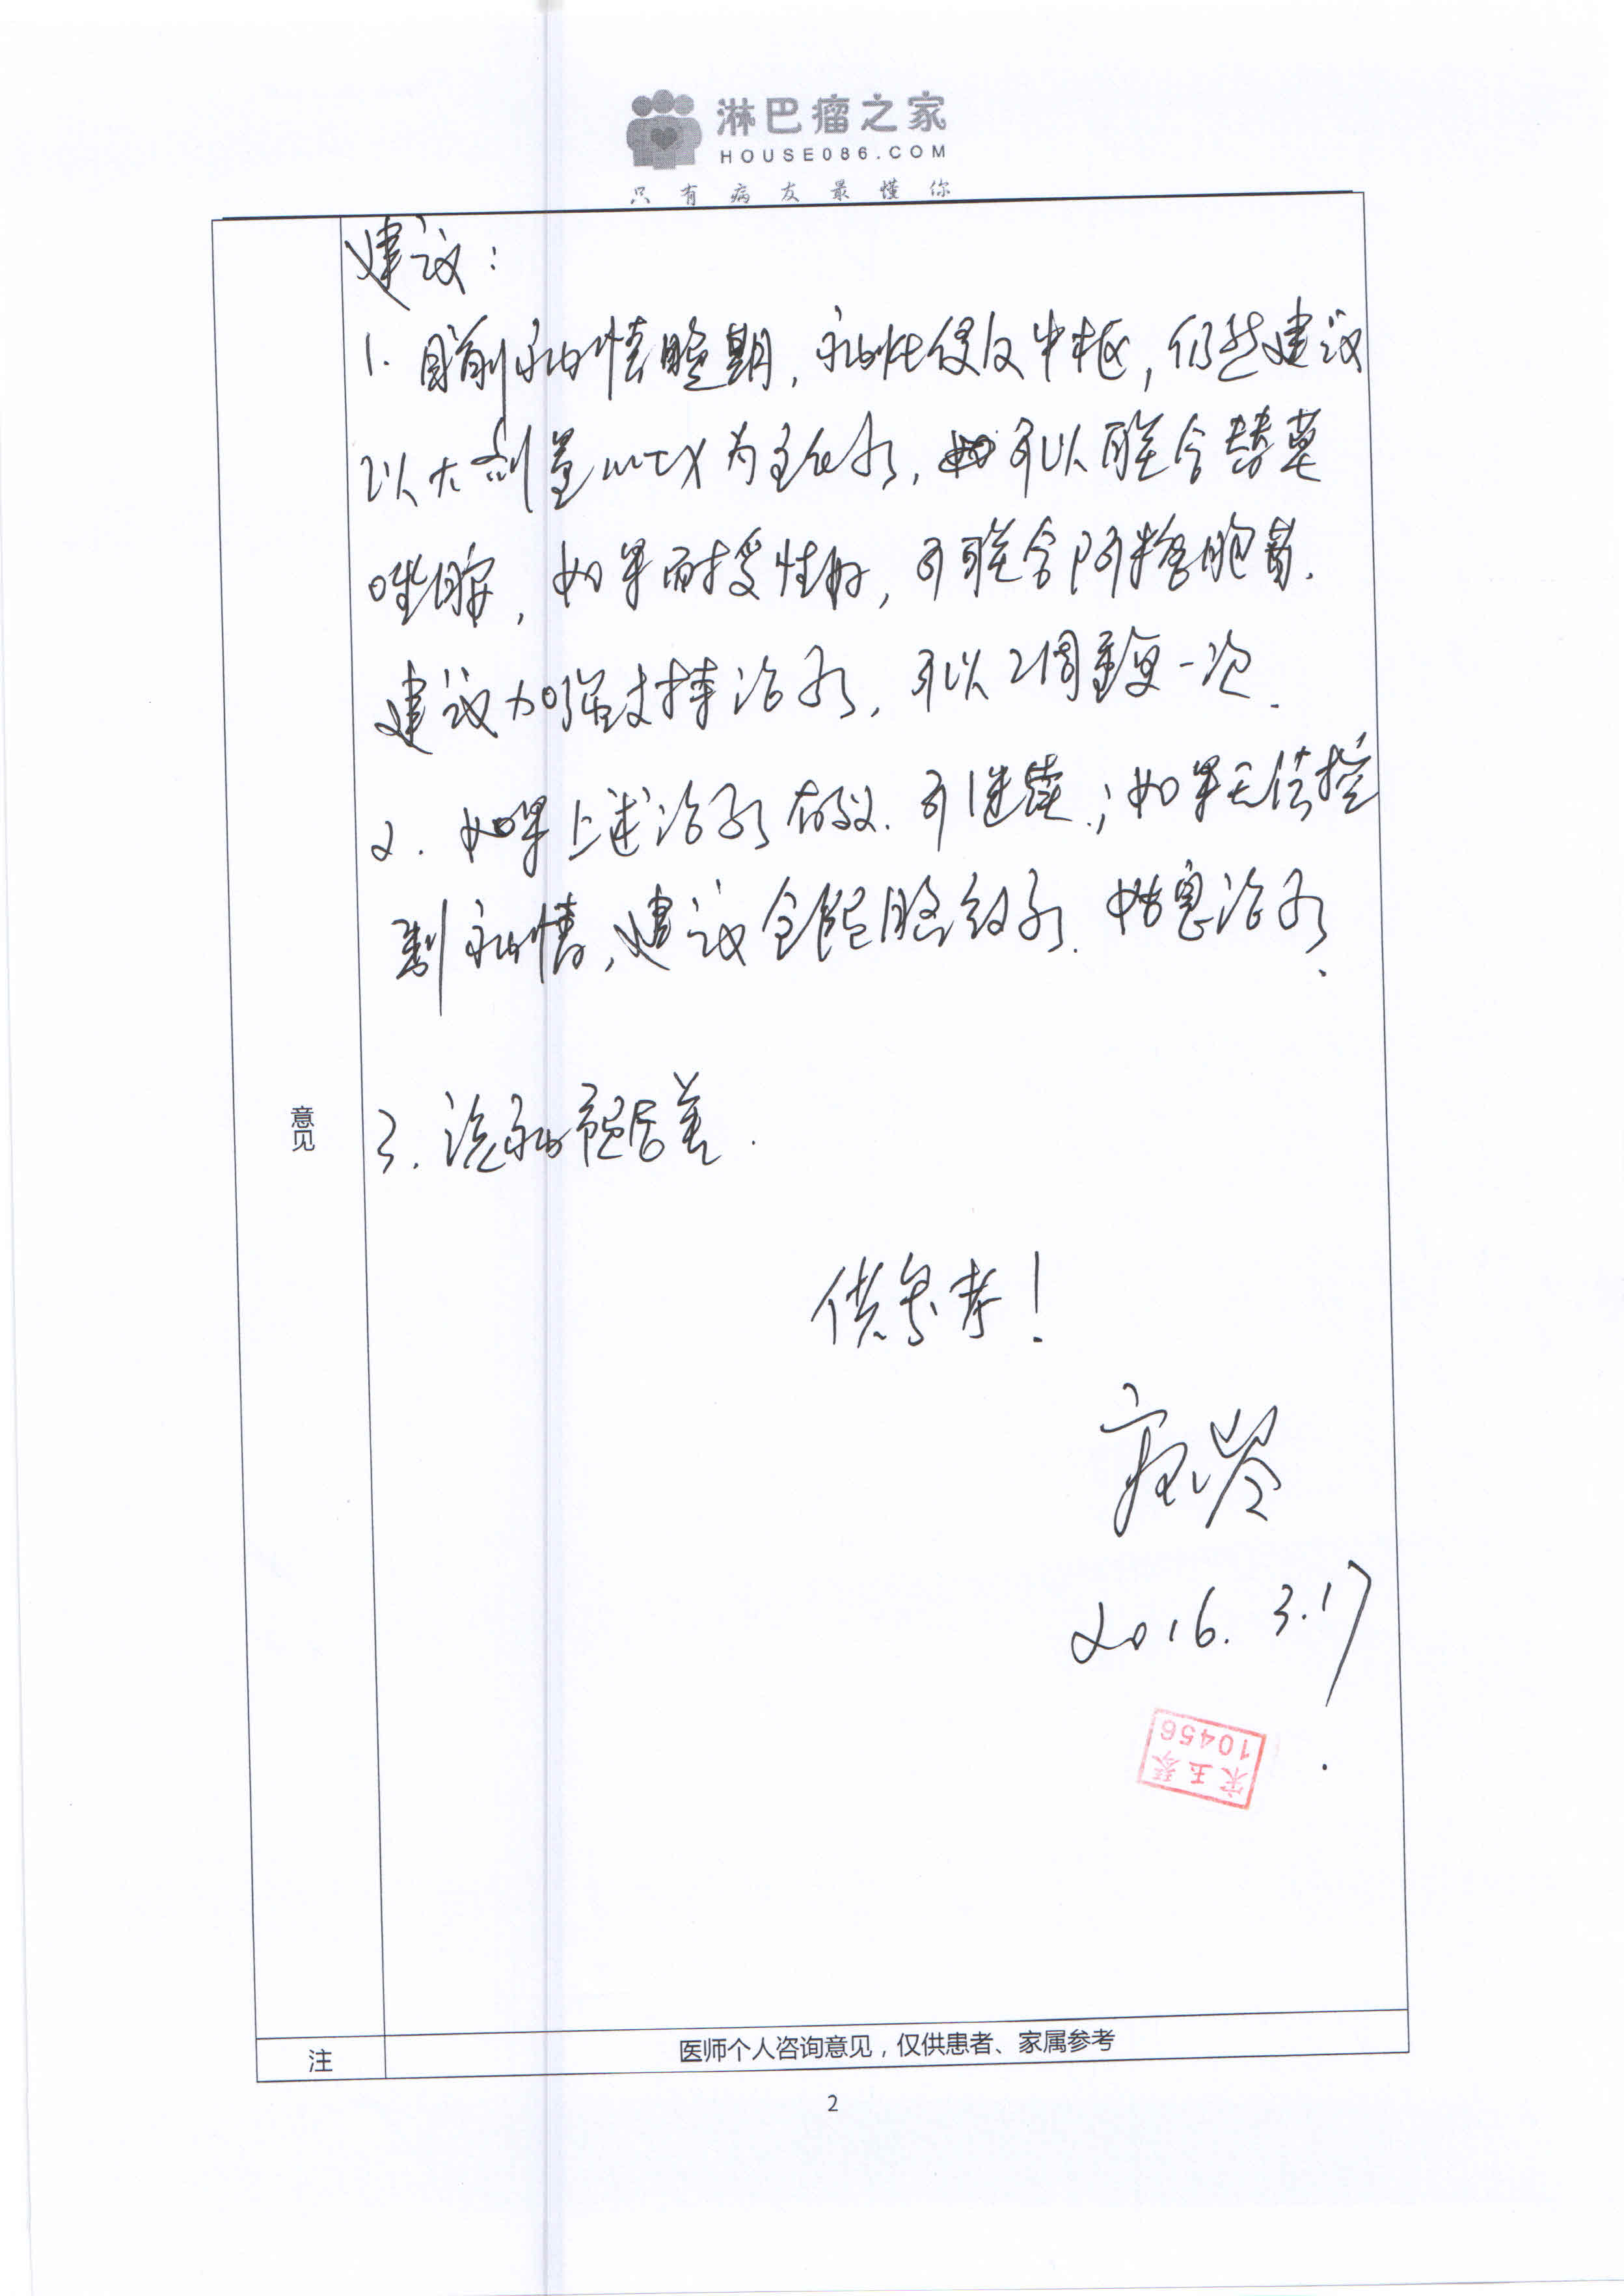 淋巴瘤之家
HOUSE086.COM
只有病友最懂你
建议:
1. 目前病情晚期,病灶侵及中枢,仍然建议
以大剂量MTX为主化疗,可以联合替莫
唑胺,如果耐受性好,可联合阿糖胞苷.
建议加强支持治疗,可以2周重复一次.
2. 如果上述治疗有效.可继续.;如果无法控
制病情,建议全脑脊放疗.姑息治疗.
意见
3. 该病预后差.
供参考!
2016.3.17
10456
宋玉琴
注
医师个人咨询意见,仅供患者、家属参考
2